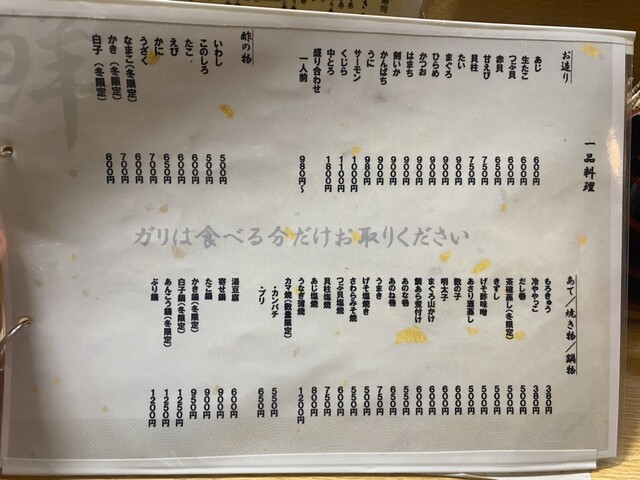 一品料理
お造り
あじ 600円
生たこ 600円
つぶ貝 600円
赤貝 650円
甘えび 750円
貝柱 750円
たい 900円
まぐろ 900円
ひらめ 900円
かつお 900円
はまち 900円
剣いか 900円
かんぱち 900円
うに 900円
サーモン 1000円
くじら 1100円
中とろ 1800円
盛り合わせ
一人前 980円～
酢の物
いわし 500円
このしろ 500円
たこ 600円
えび 600円
かに 650円
うざく 700円
なまこ(冬限定) 600円
かき(冬限定) 700円
白子(冬限定) 800円
ガリは食べる分だけお取りください
あて／焼き物／鍋物
もろきゅう 380円
冷ややっこ 380円
だし巻 500円
茶碗蒸し(冬限定) 500円
きずし 500円
げそ酢味噌 500円
あさり酒蒸し 550円
数の子 500円
明太子 600円
まぐろ山かけ 600円
鯛あら煮付け 600円
あなな巻 550円
あのね巻 650円
うまき 750円
げそ塩焼き 550円
さわらみそ焼 550円
つぶ貝塩焼 600円
貝柱塩焼 750円
あじ塩焼 800円
うなぎ蒲焼 1200円
カマ焼(数量限定)
・カンパチ 550円
・ブリ 650円
湯豆腐 600円
寄せ鍋 900円
たこ鍋 900円
かき鍋(冬限定) 950円
白子鍋(冬限定) 1250円
あんこう鍋(冬限定) 1250円
ぶり鍋 1200円